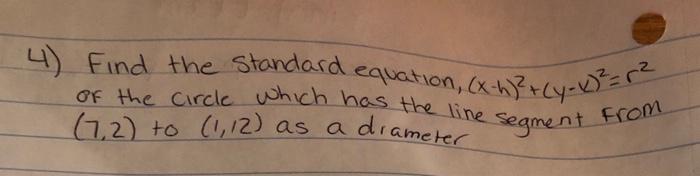 4) Find the standard equation, (x-h)²+(y-k)²=r²
of the circle which has the line segment from
(7,2) to (1,12) as a diameter